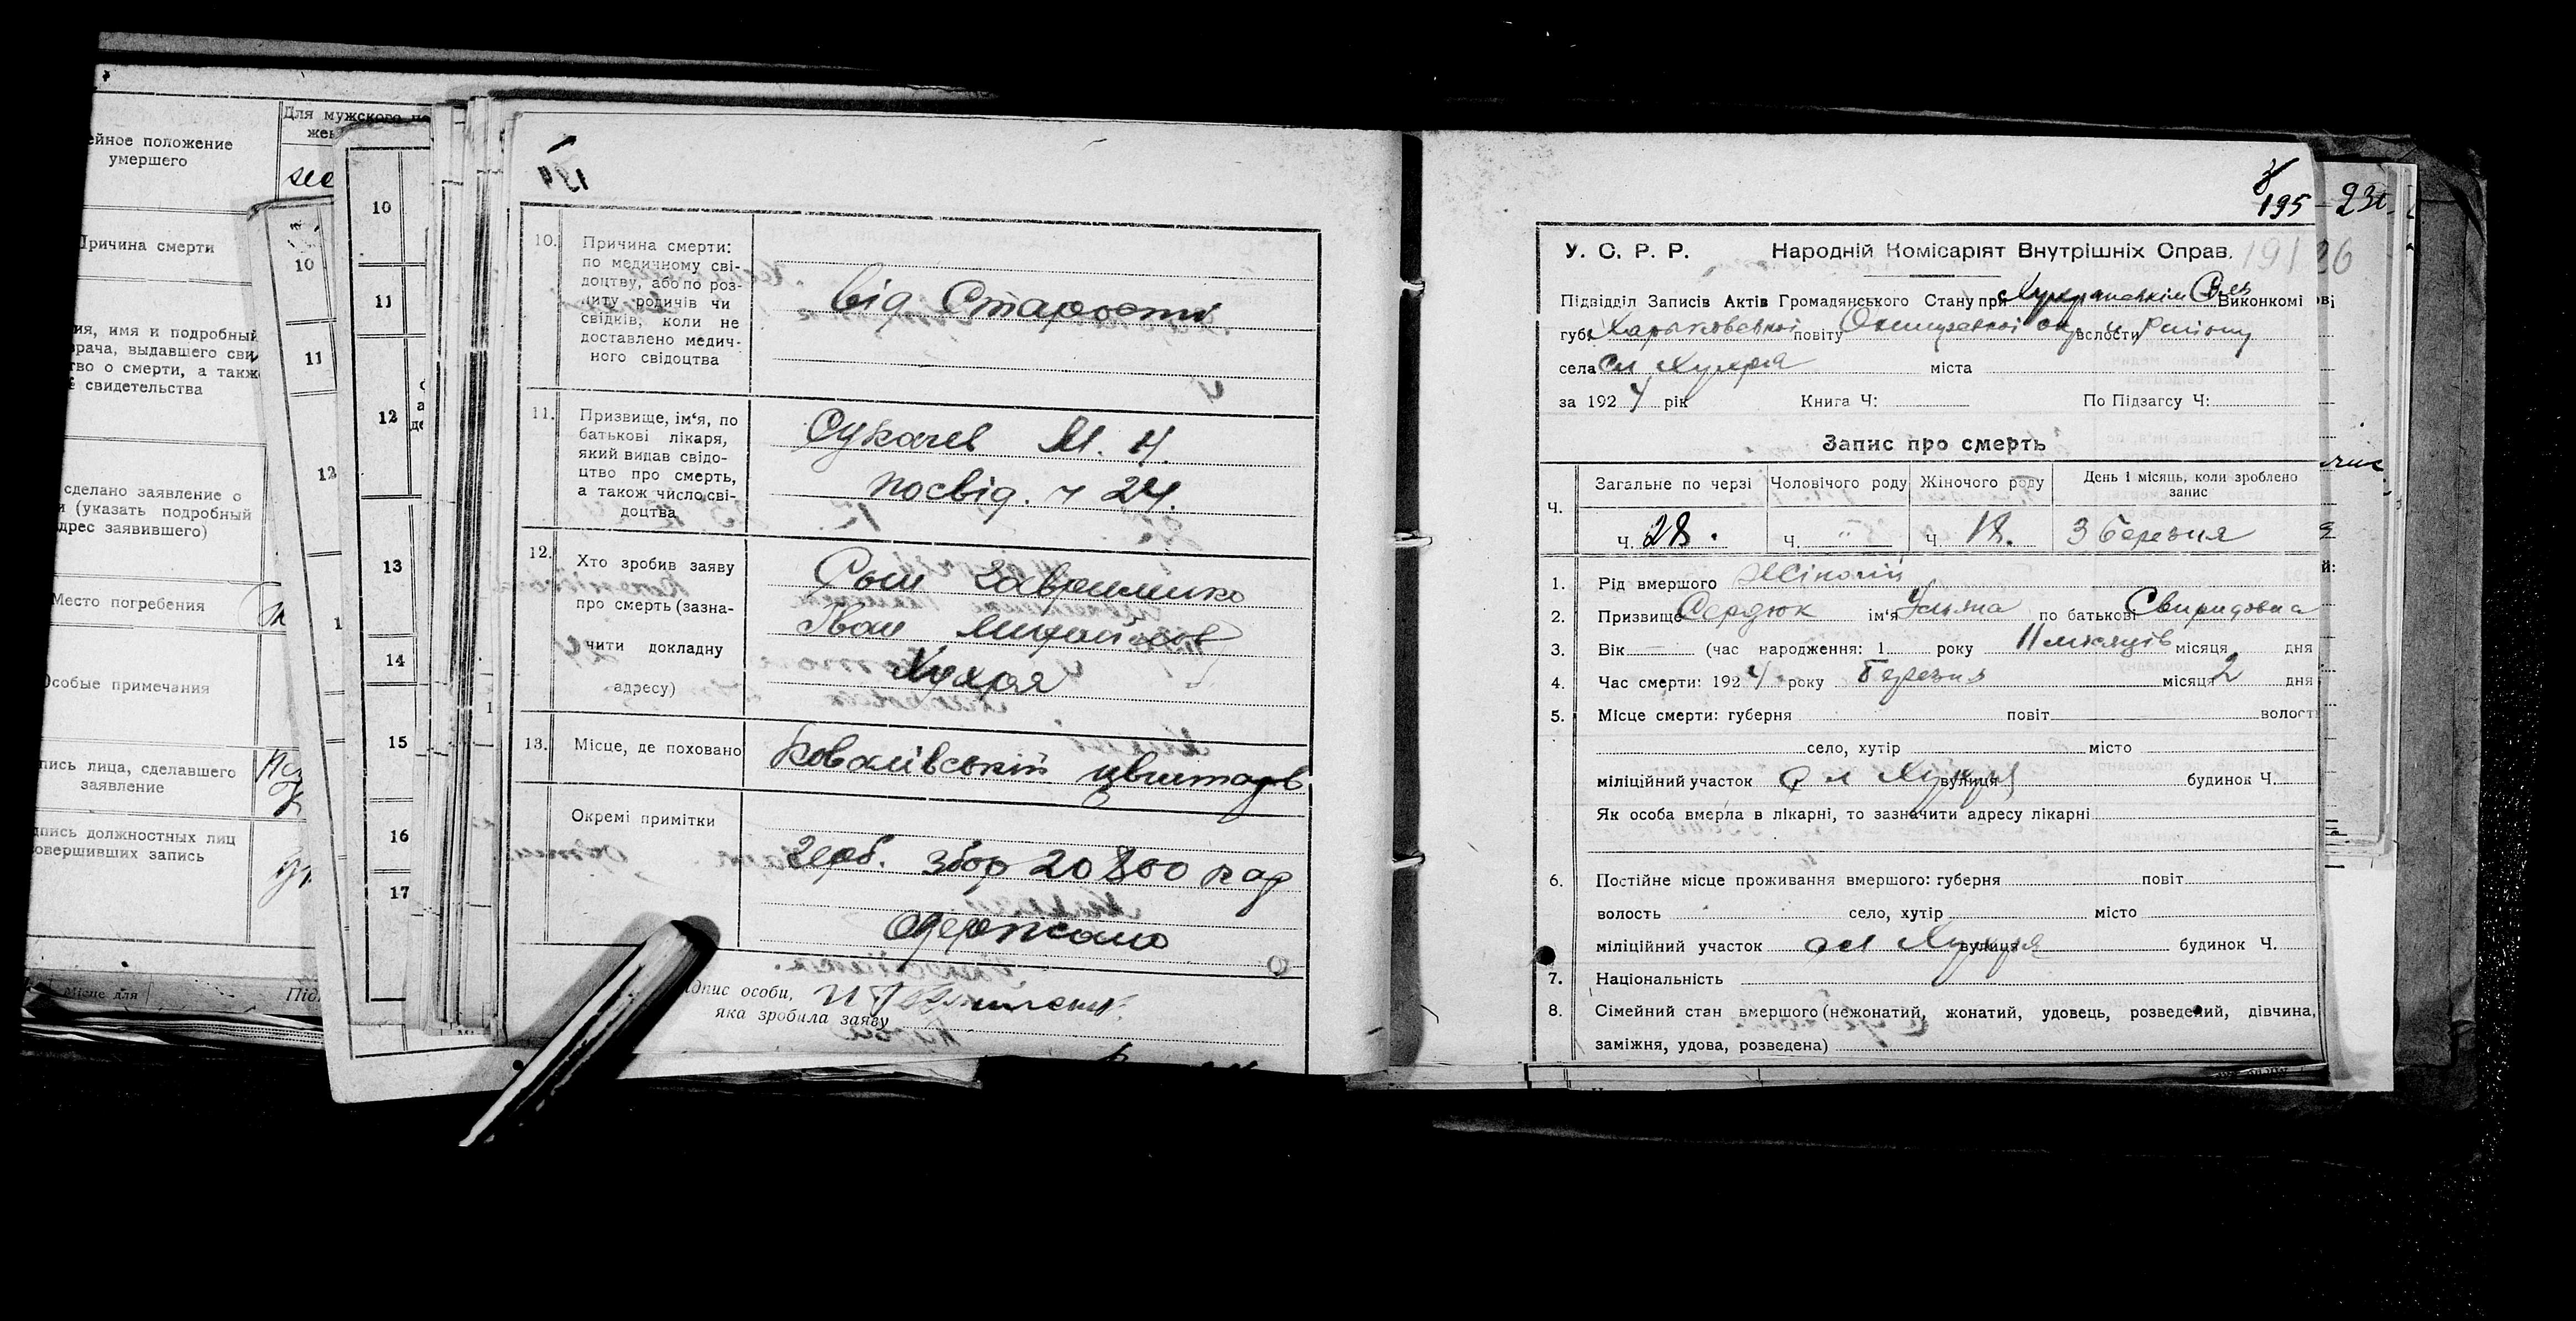 ейное положение
умершего
Для мужского по
Причина смерти
ия, имя и подробный
врача, выдавшего сви
тво о смерти, а также
№ свидетельства
сделано заявление о
и (указать подробный
адрес заявившего)
Место погребения
Особые примечания
пись лица, сделавшего
заявление
дпись должностных лиц
совершивших запись
Місце для
10
11
12
10
11
12
13
14
15
16
17
194
10. Причина смерти:
по медичному сві-
доцтву, або по роз-
питу родичів чи
свідків, коли не
доставлено медич-
ного свідоцтва
від Старости
11. Призвище, ім'я, по
батькові лікаря,
який видав свідо-
цтво про смерть,
а також число сві-
доцтва
Сукачев М. Н.
посвід. ч 24.
12. Хто зробив заяву
про смерть (зазна-
чити докладну
адресу)
Сын Гавриленко
Іван Михайлов
Хухря
13. Місце, де поховано
Ковалівський цвинтарь
Окремі примітки
Герб. збор 20800 р
одержано
дпис особи,
яка зробила заяву
195
23
191 26
У. С. Р. Р. Народній Комісаріят Внутрішніх Справ.
Підвідділ Записів Актів Громадянського Стану при Хухрянскім Виконкомі
губ. Харьковської повіту Охтирської ок. волости Району
села Сл Хухря міста
за 1924 рік Книга Ч: По Підзагсу Ч:
Запис про смерть
Ч. Загальне по черзі Чоловічого роду Жіночого роду День і місяць, коли зроблено
запис
Ч. 28. Ч. " Ч. 18. 3 березня
1. Рід вмершого Жіночий
2. Призвище Сердюк ім'я Уляна по батькові Свиридовна
3. Вік — (час народження: 1 року 11 місяців місяця дня
4. Час смерти: 1924 року Березня місяця 2 дня
5. Місце смерти: губерня повіт волость
село, хутір місто
міліційний участок сл Хухря вулиця будинок Ч.
Як особа вмерла в лікарні, то зазначити адресу лікарні
6. Постійне місце проживання вмершого: губерня повіт
волость село, хутір місто
міліційний участок сл Хухря вулиця будинок Ч.
7. Національність
8. Сімейний стан вмершого (нежонатий, жонатий, удовець, розведений, дівчина,
заміжня, удова, розведена)